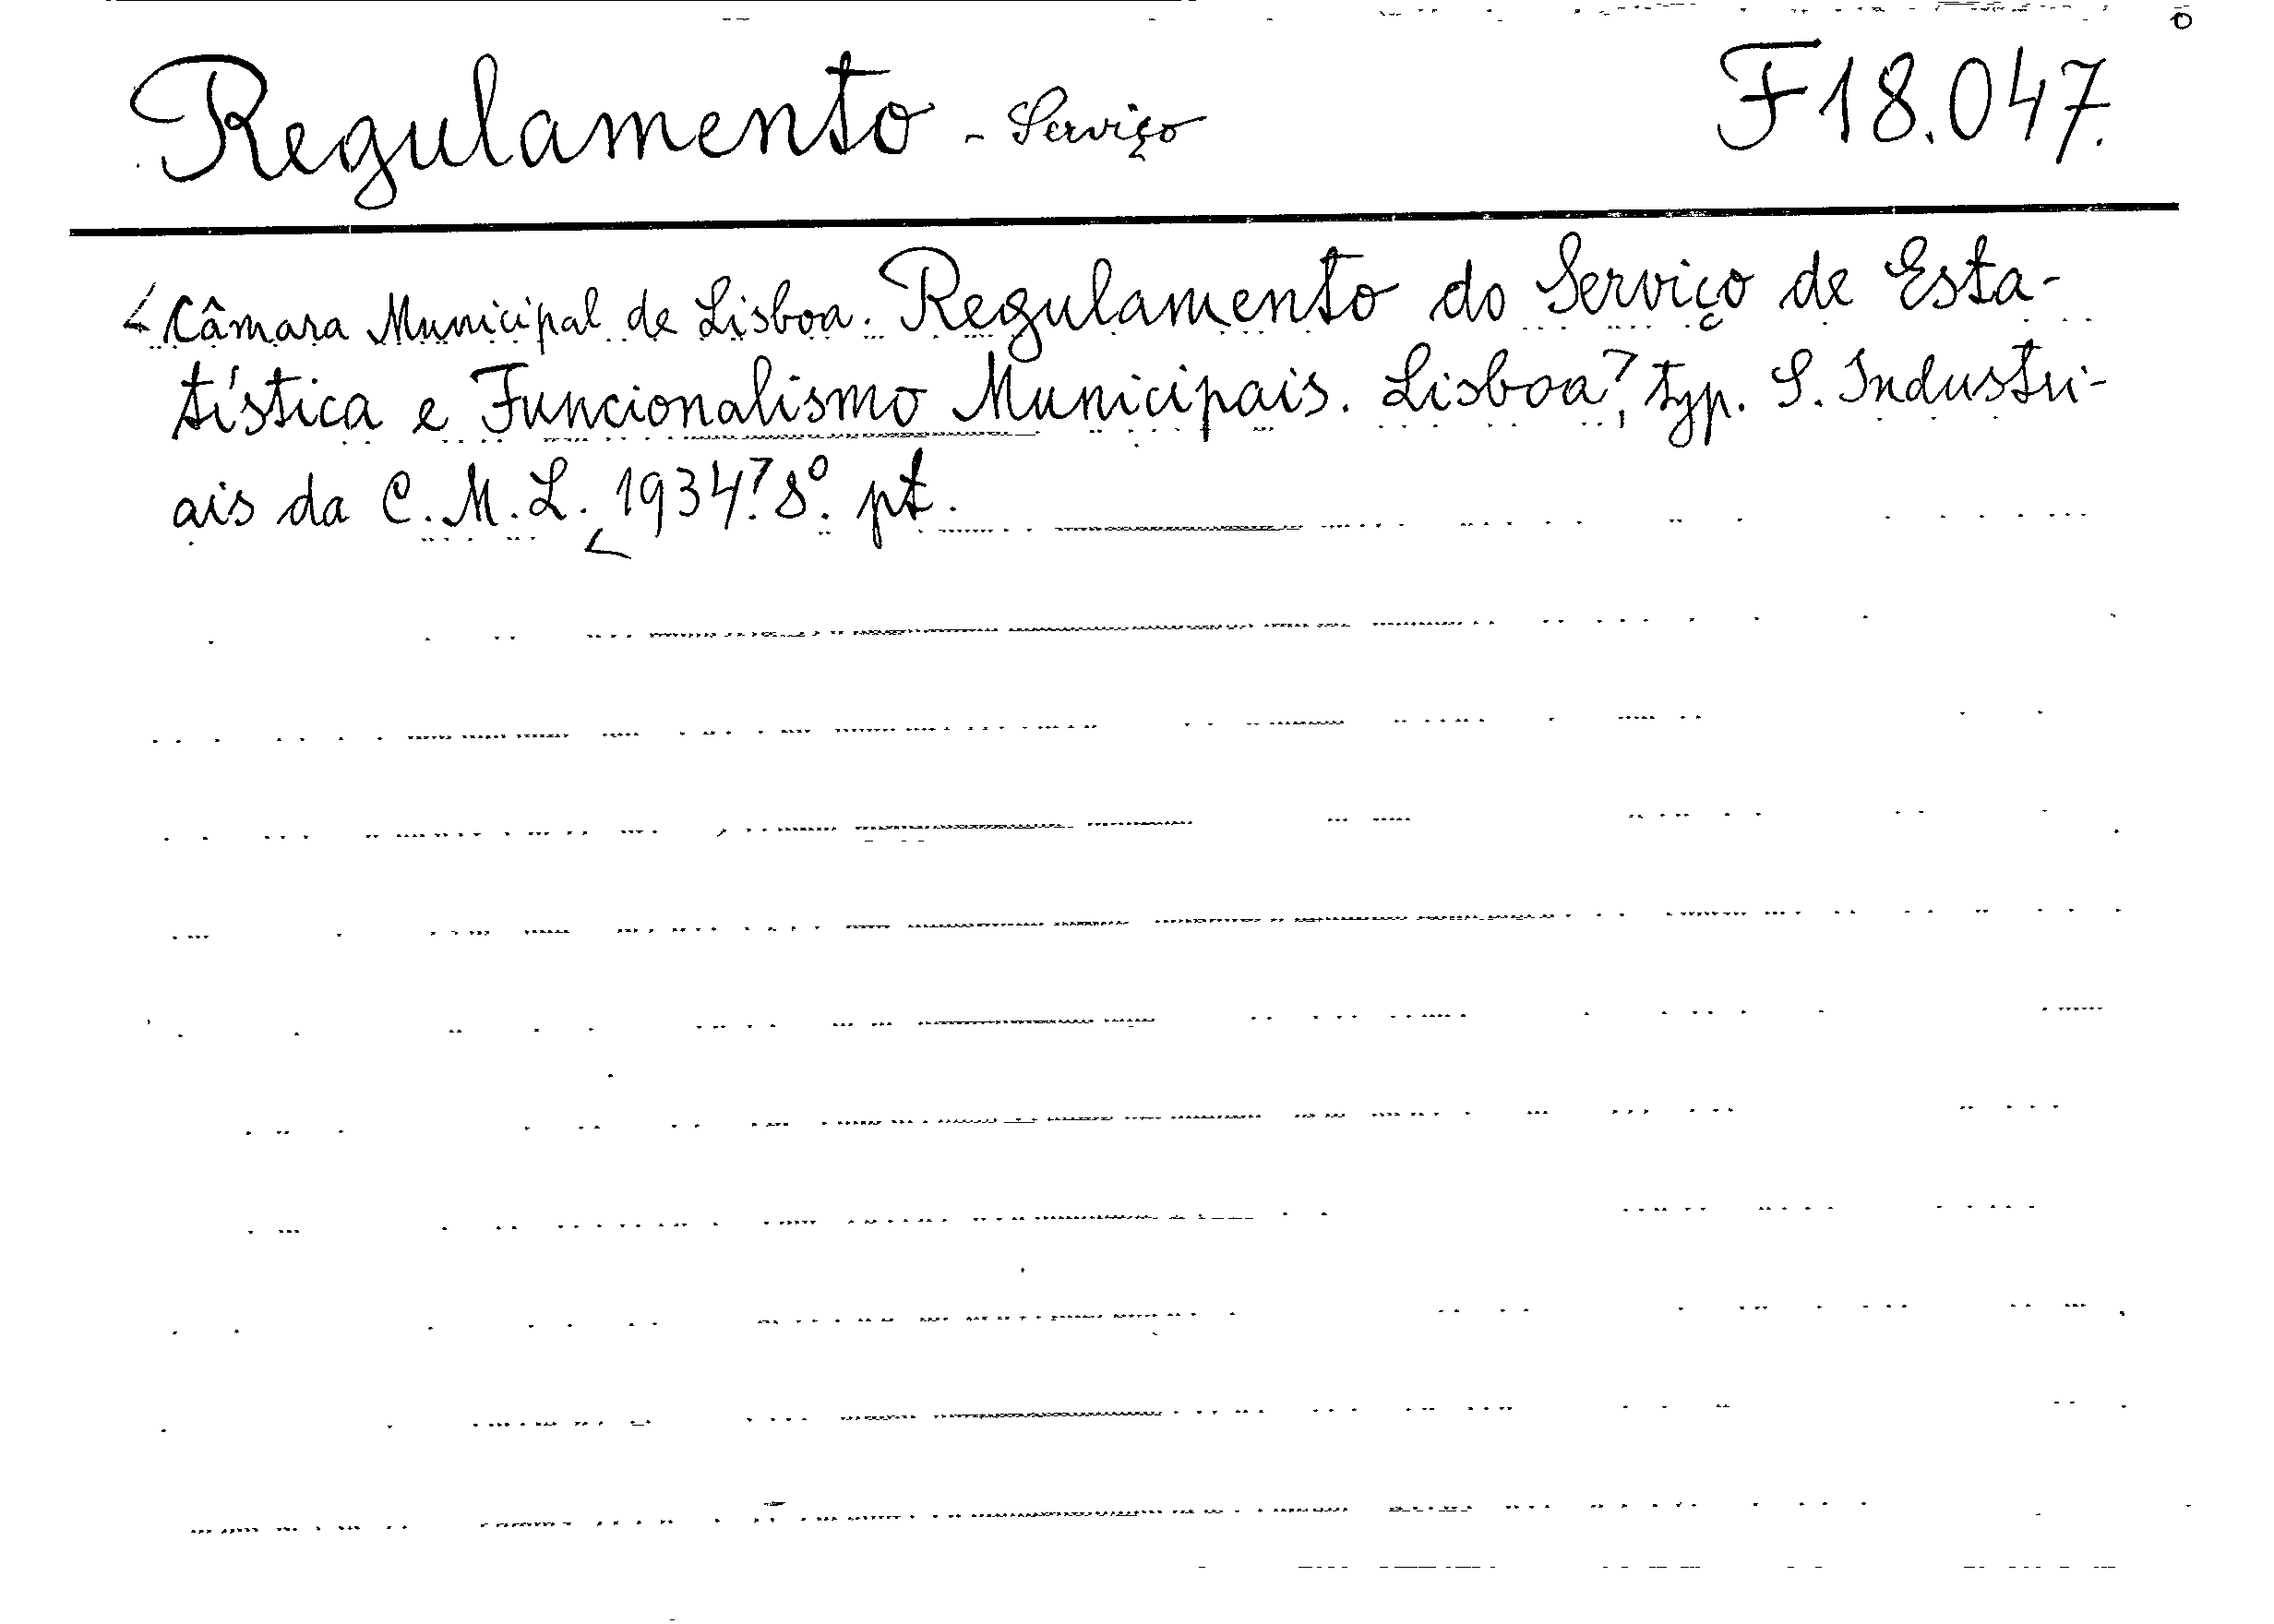 Regulamento - Serviço F18.047.
<Câmara Municipal de Lisboa. Regulamento do Serviço de Esta-
tística e Funcionalismo Municipais. Lisboa>, typ. S. Industri-
ais da C. M. L. <1934>. 8º. pt.